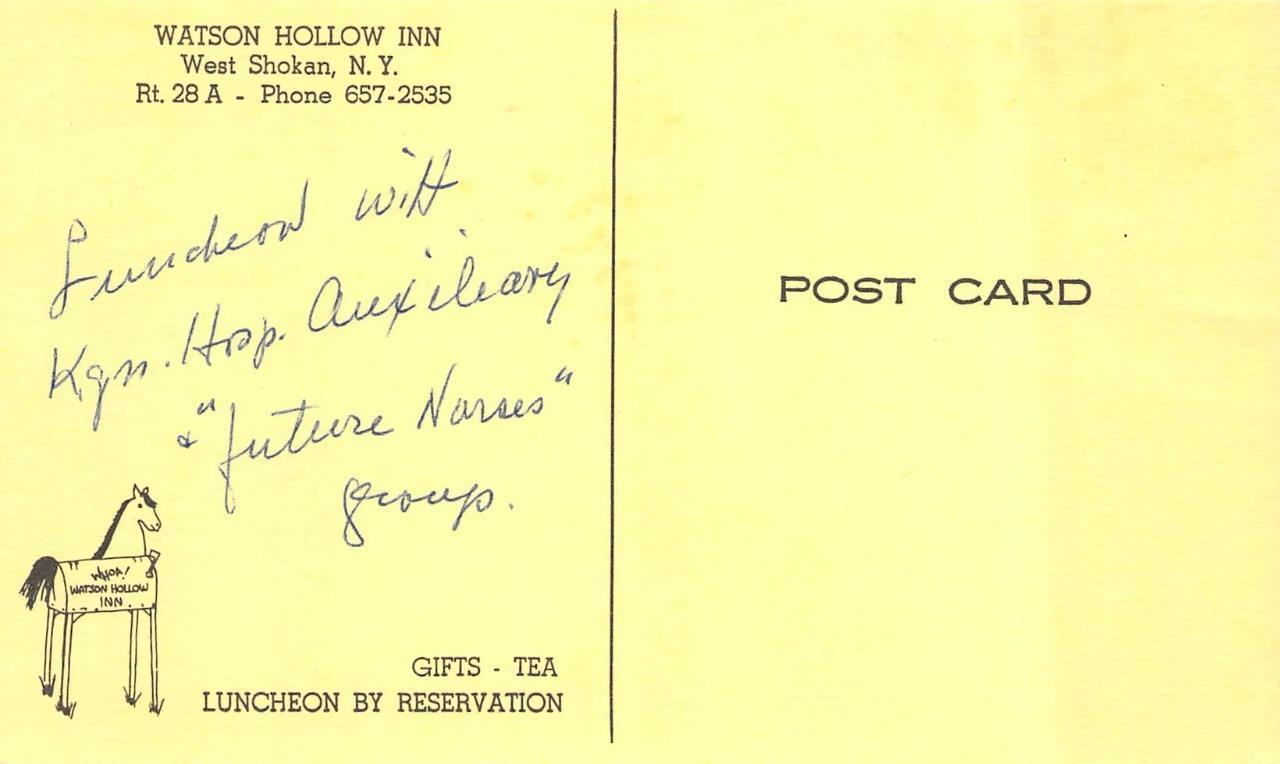 WATSON HOLLOW INN
West Shokan, N. Y.
Rt. 28 A - Phone 657-2535
Luncheon with
Kgn. Hosp. Auxileary
& "future Nurses"
group.
WHOA!
WATSON HOLLOW
INN
GIFTS - TEA
LUNCHEON BY RESERVATION
POST CARD